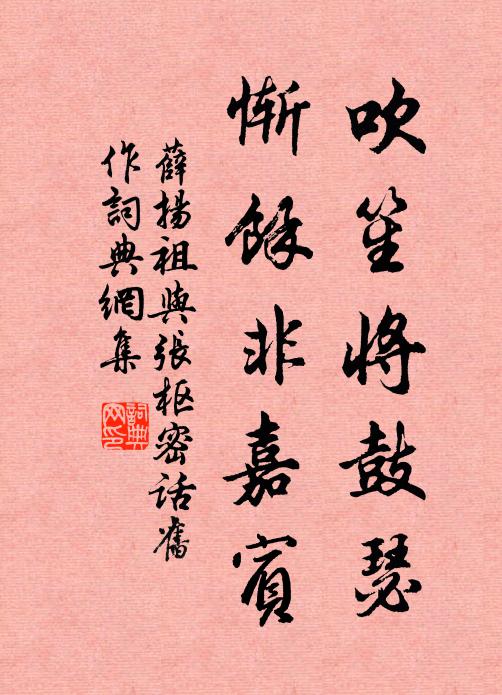 吹笙将鼓瑟
惭餘非嘉賓
薛揚祖與張枢密话舊
作詞典網集
詞典网印